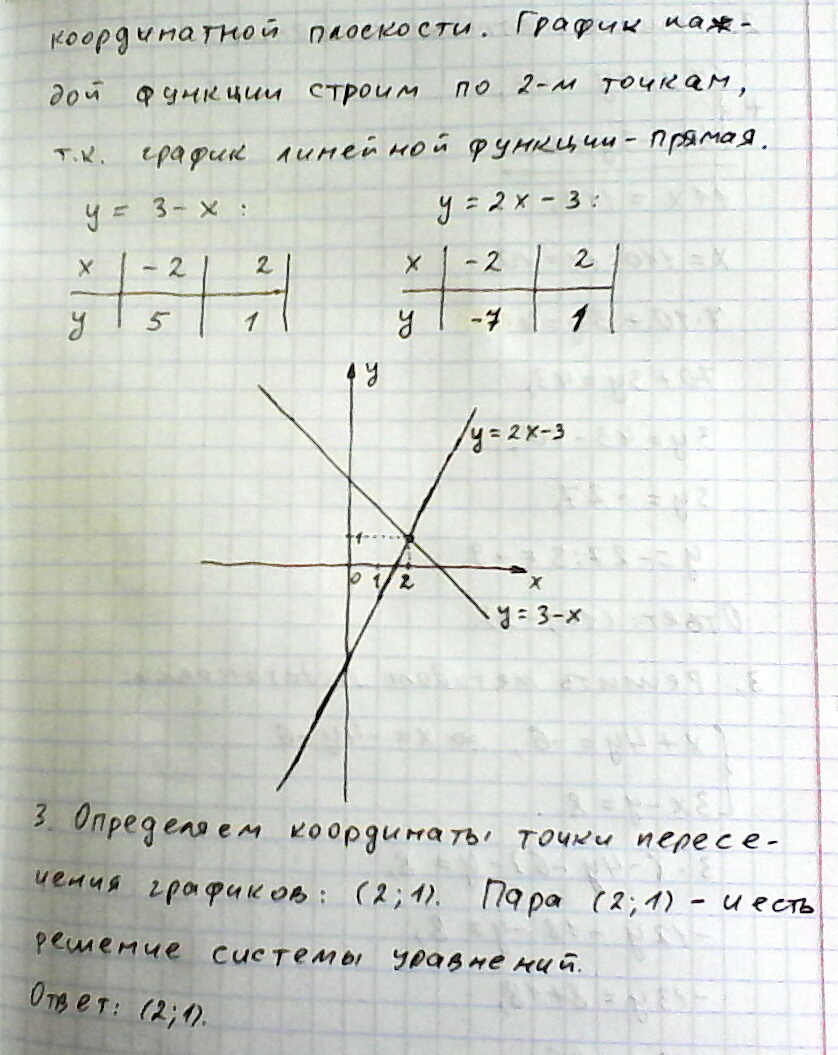 координатной плоскости. График каж-
дой функции строим по 2-м точкам,
т.к. график линейной функции - прямая.
y = 3 - x :
y = 2x - 3 :
x | -2 | 2 |
y | 5 | 1 |
x | -2 | 2 |
y | -7 | 1 |
y
y = 2x-3
1
0 1 2 x
y = 3-x
3. Определяем координаты точки пересе-
чения графиков: (2;1). Пара (2;1) - и есть
решение системы уравнений.
Ответ: (2;1).